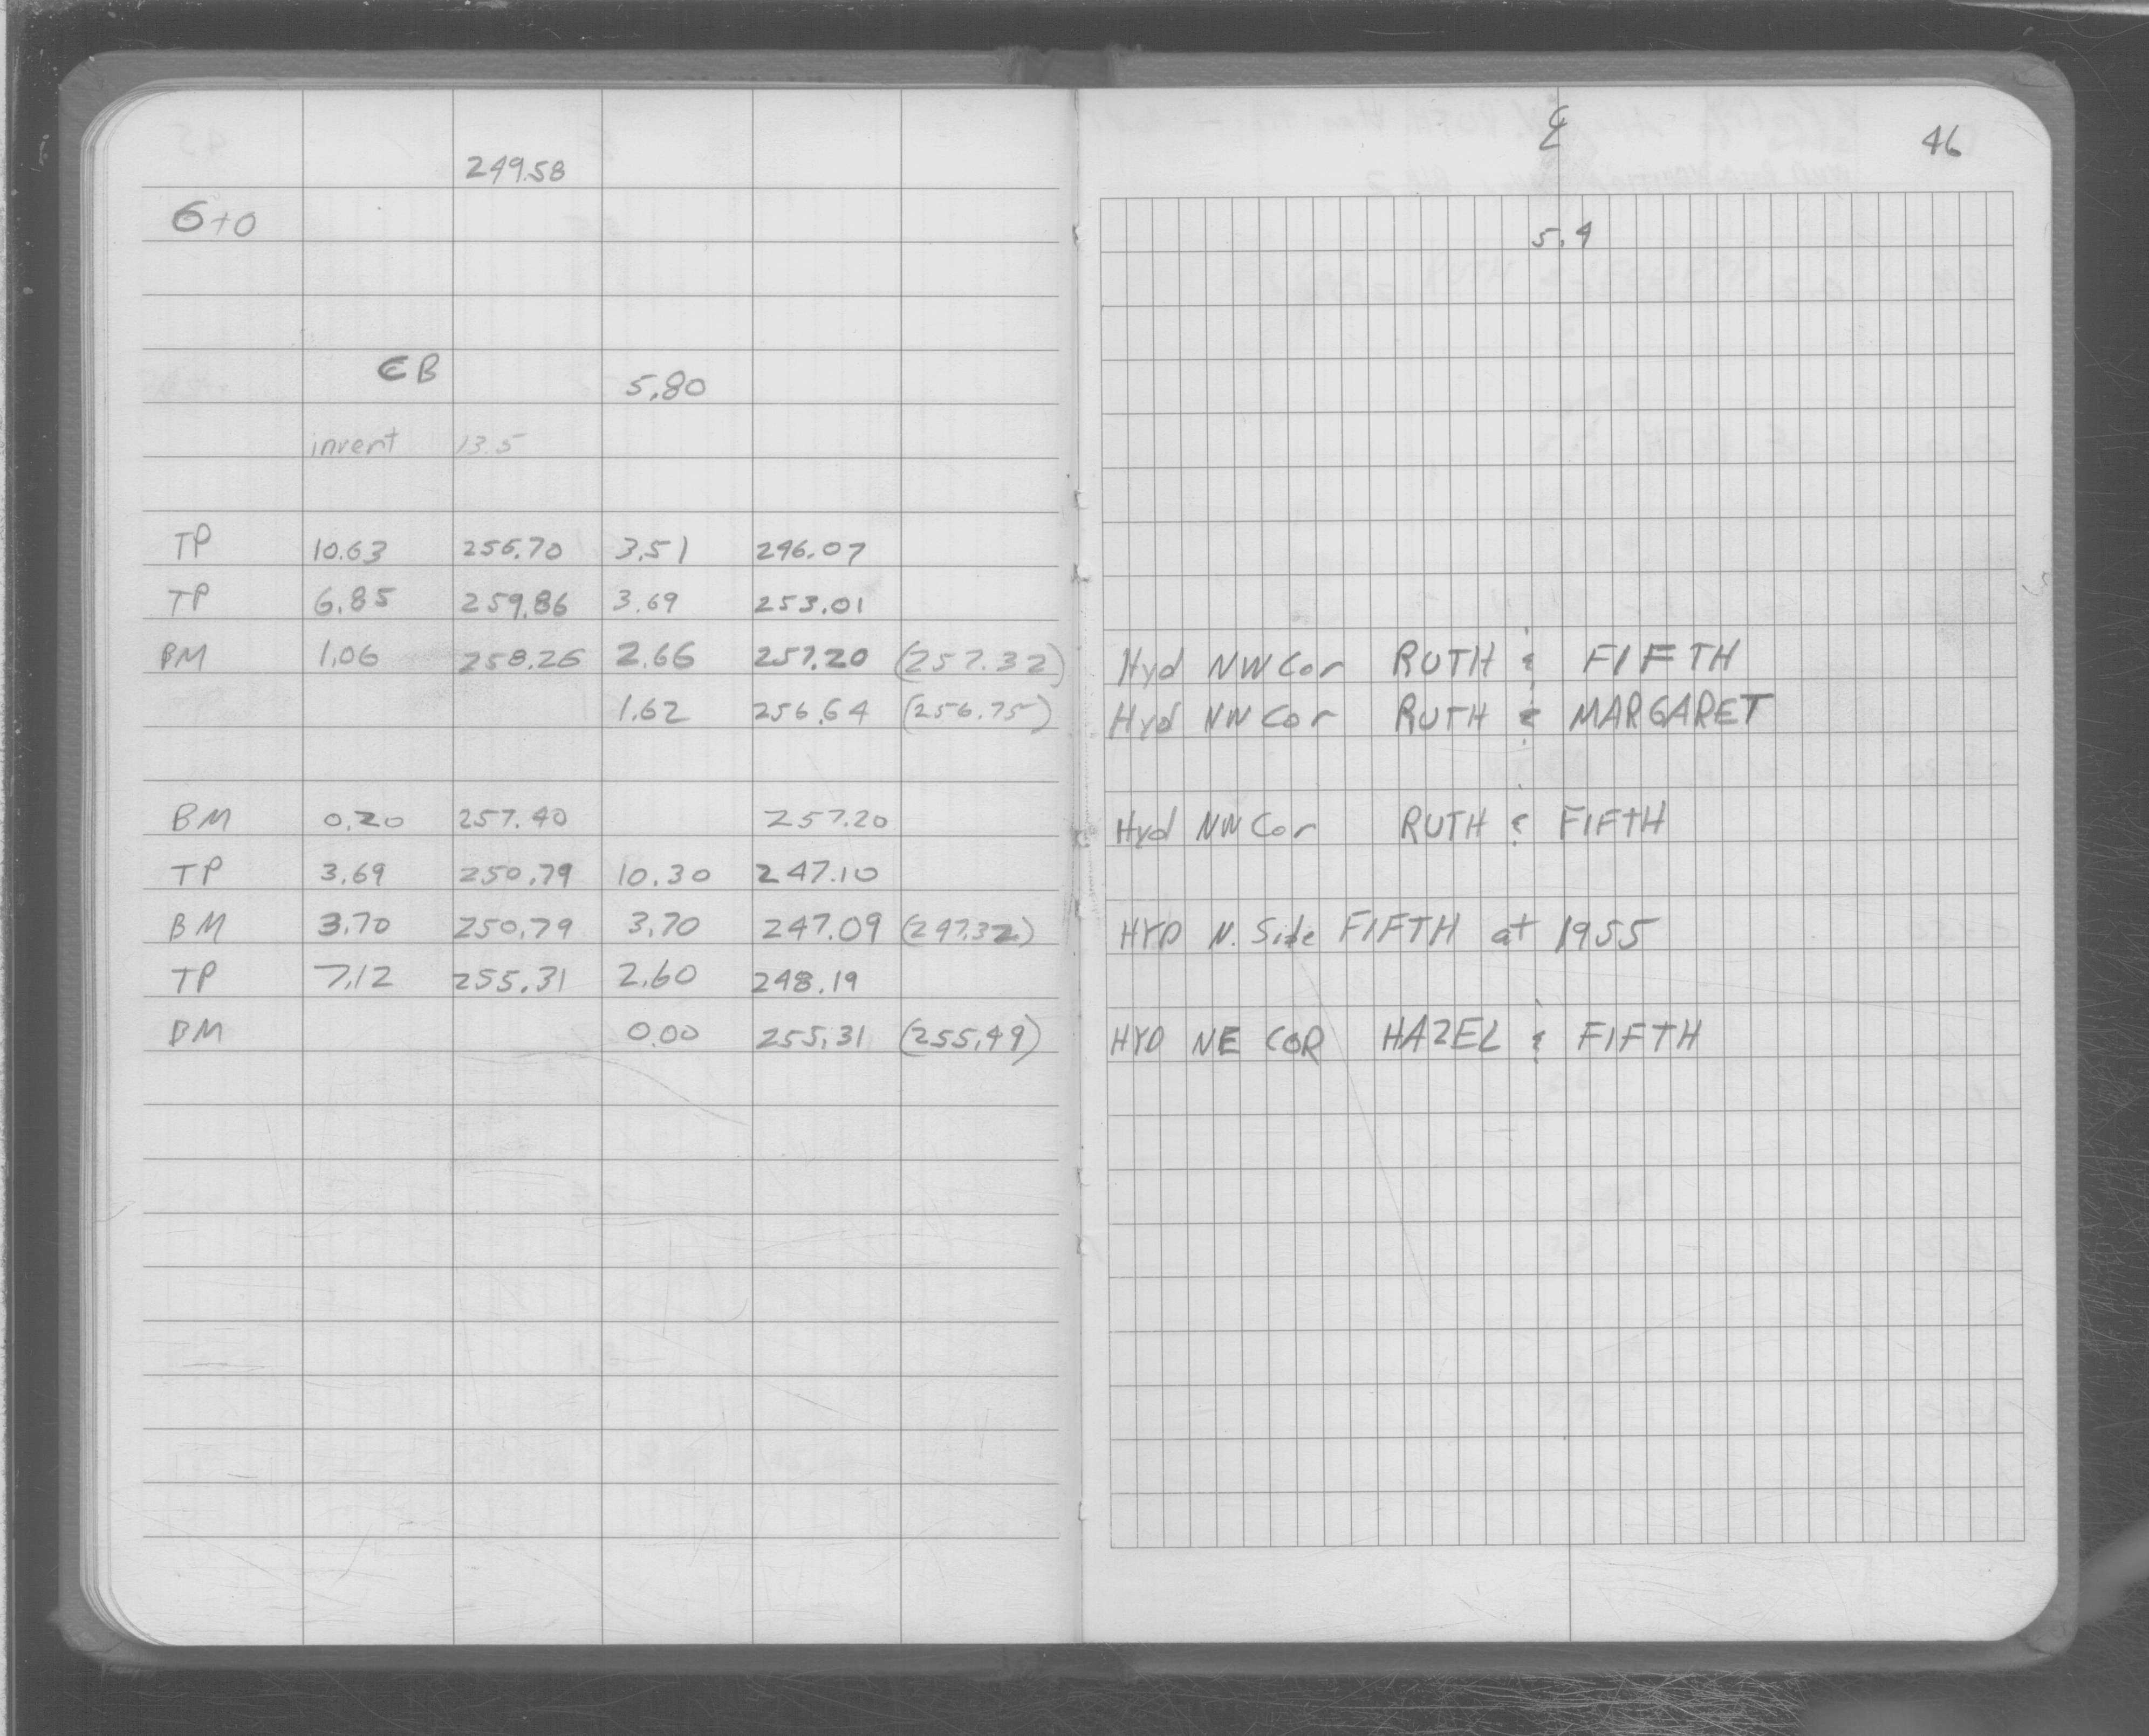 249.58
6+0
CB 5.80
invert 13.5
TP 10.63 256.70 3.51 246.07
TP 6.85 259.86 3.69 253.01
BM 1.06 258.26 2.66 257.20 (257.32)
1.62 256.64 (256.75)
BM 0.20 257.40 257.20
TP 3.69 250.79 10.30 247.10
BM 3.70 250.79 3.70 247.09 (247.32)
TP 7.12 255.31 2.60 248.19
BM 0.00 255.31 (255.49)
℄ 46
5.4
Hyd NW Cor RUTH & FIFTH
Hyd NW Cor RUTH & MARGARET
Hyd NW Cor RUTH & FIFTH
HYD N. Side FIFTH at 1955
HYD NE COR HAZEL & FIFTH